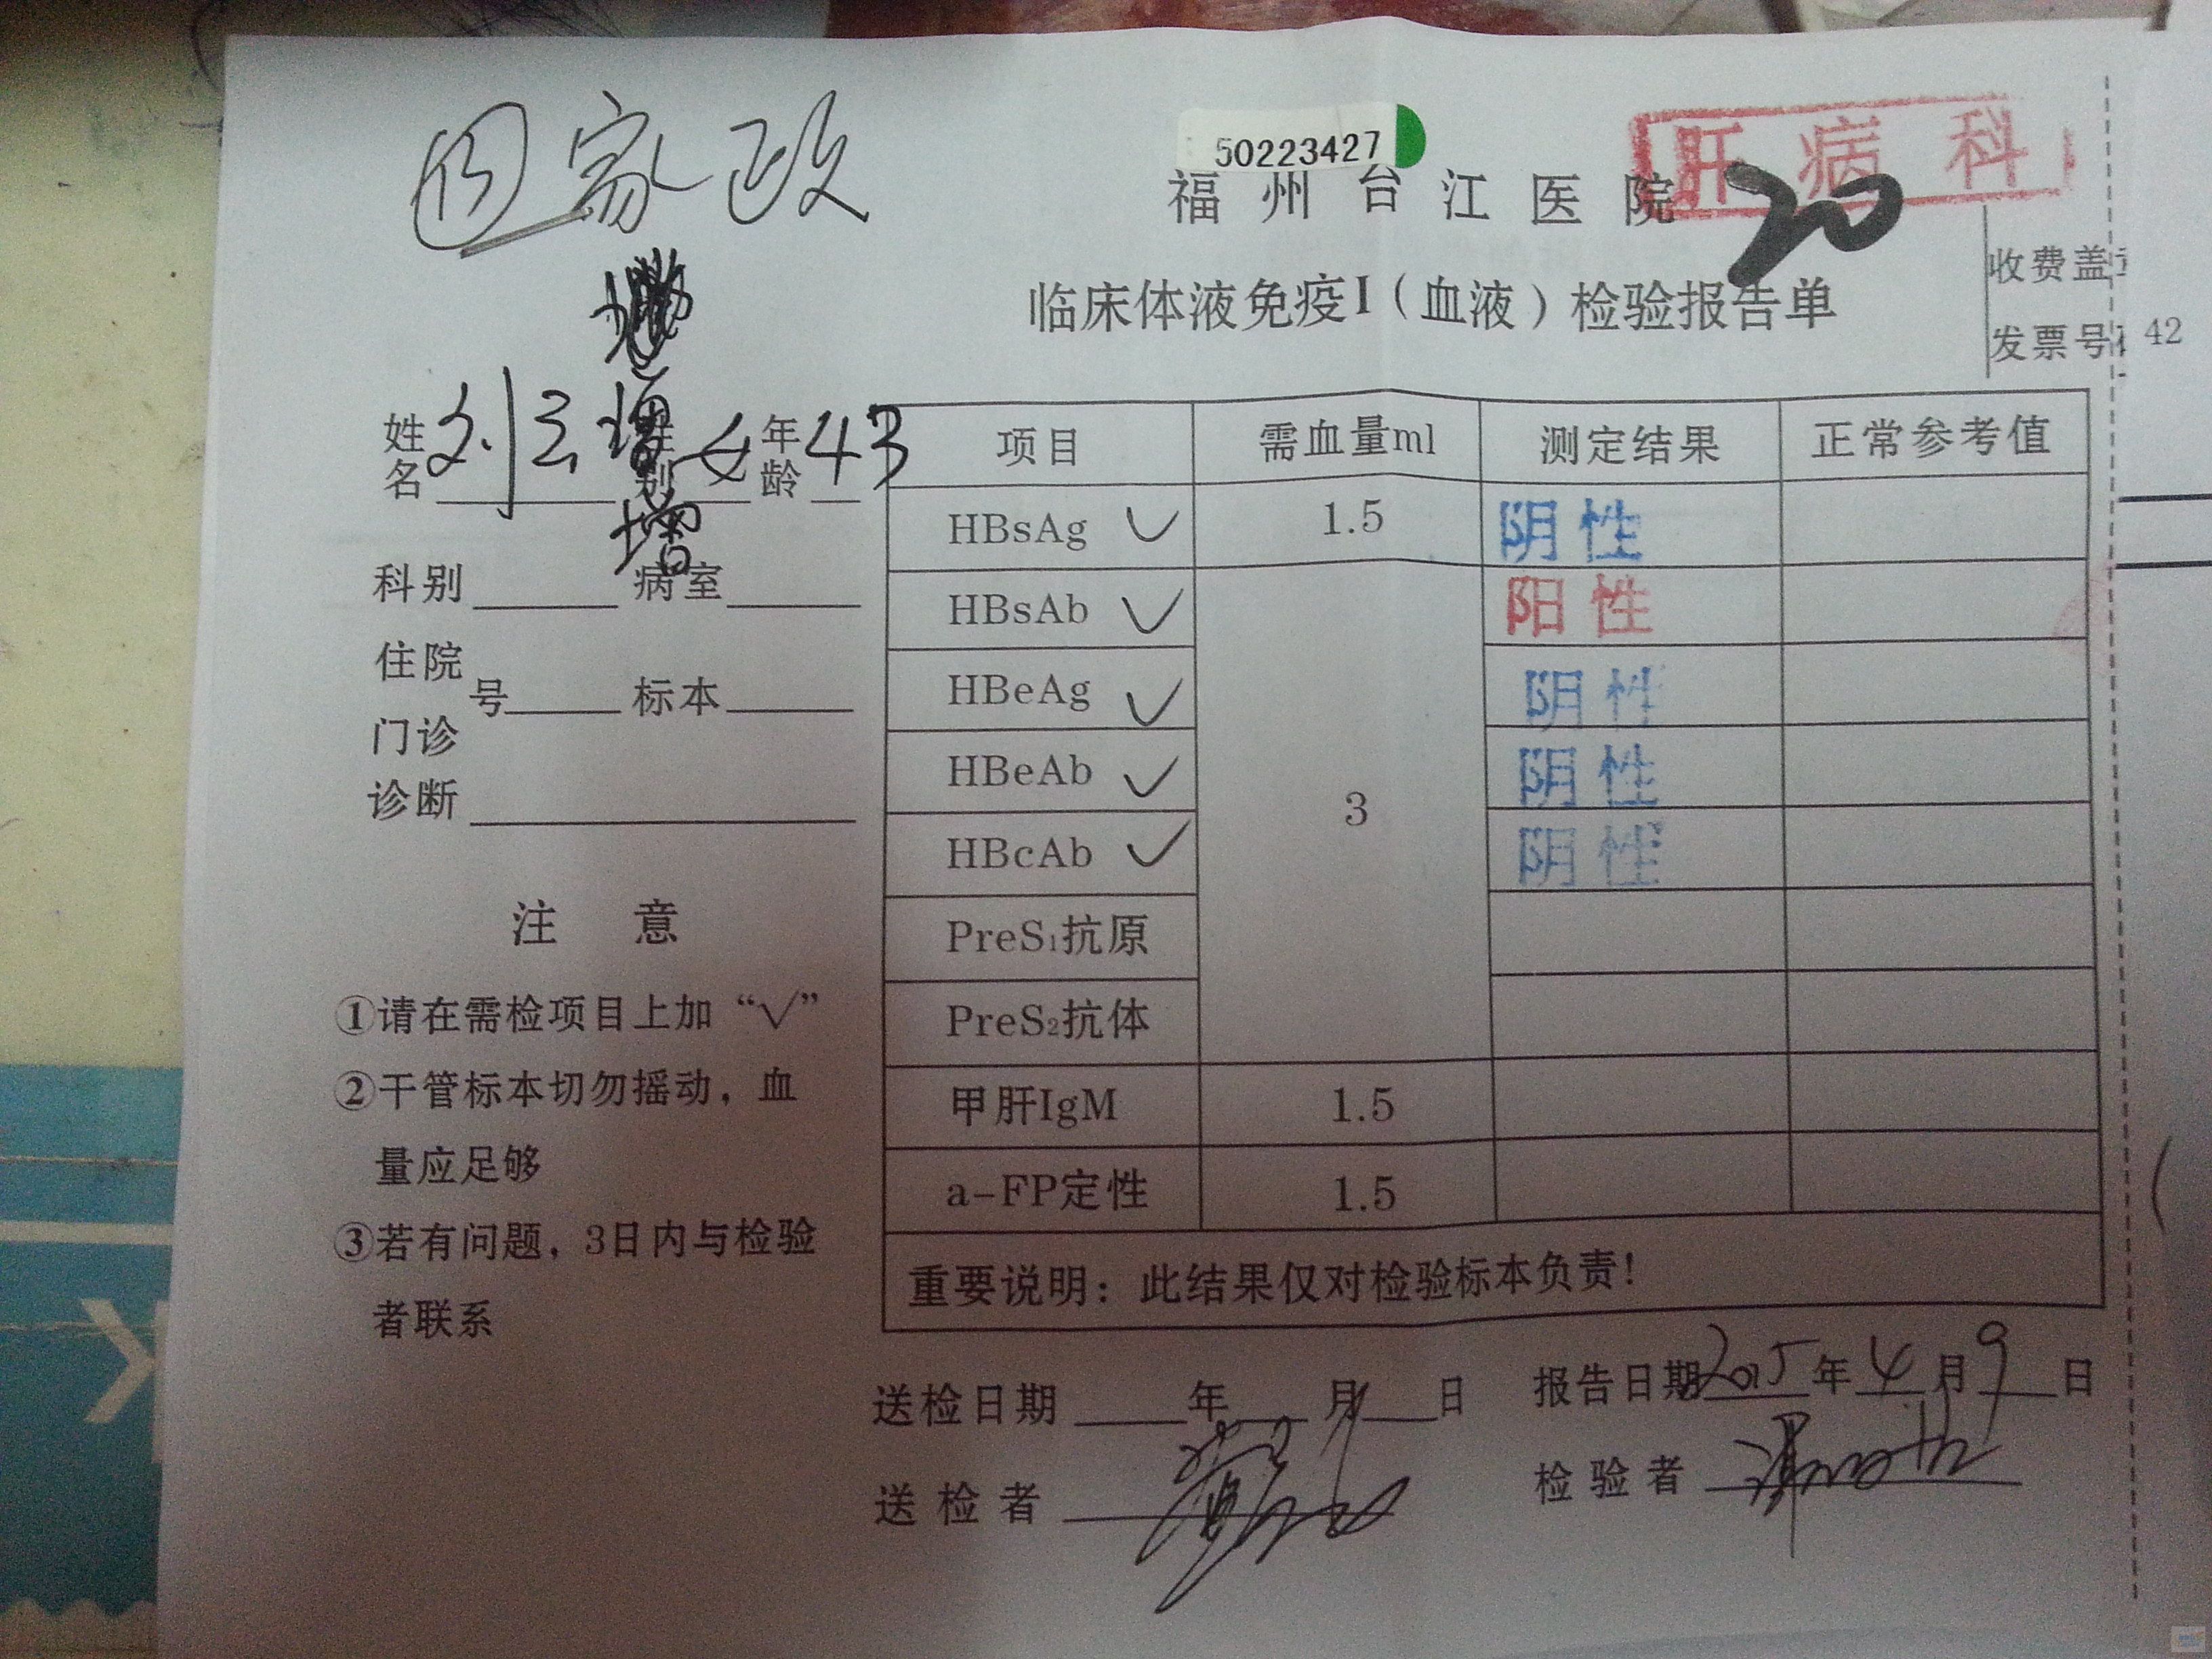 家政
50223427
肝病科
20
福州台江医院
临床体液免疫I（血液）检验报告单
收费盖
发票号
42
姓名 刘云 性别 女 年龄 43
增
科别 病室
住院
号 标本
门诊
诊断
注 意
①请在需检项目上加“√”
②干管标本切勿摇动，血
量应足够
③若有问题，3日内与检验
者联系
项目 需血量ml 测定结果 正常参考值
HBsAg √ 1.5 阴性
HBsAb √ 3 阳性
HBeAg √ 阴性
HBeAb √ 阴性
HBcAb √ 阴性
PreS₁抗原
PreS₂抗体
甲肝IgM 1.5
a-FP定性 1.5
重要说明：此结果仅对检验标本负责！
送检日期 年 月 日 报告日期 2015年4月9日
送检者 检验者